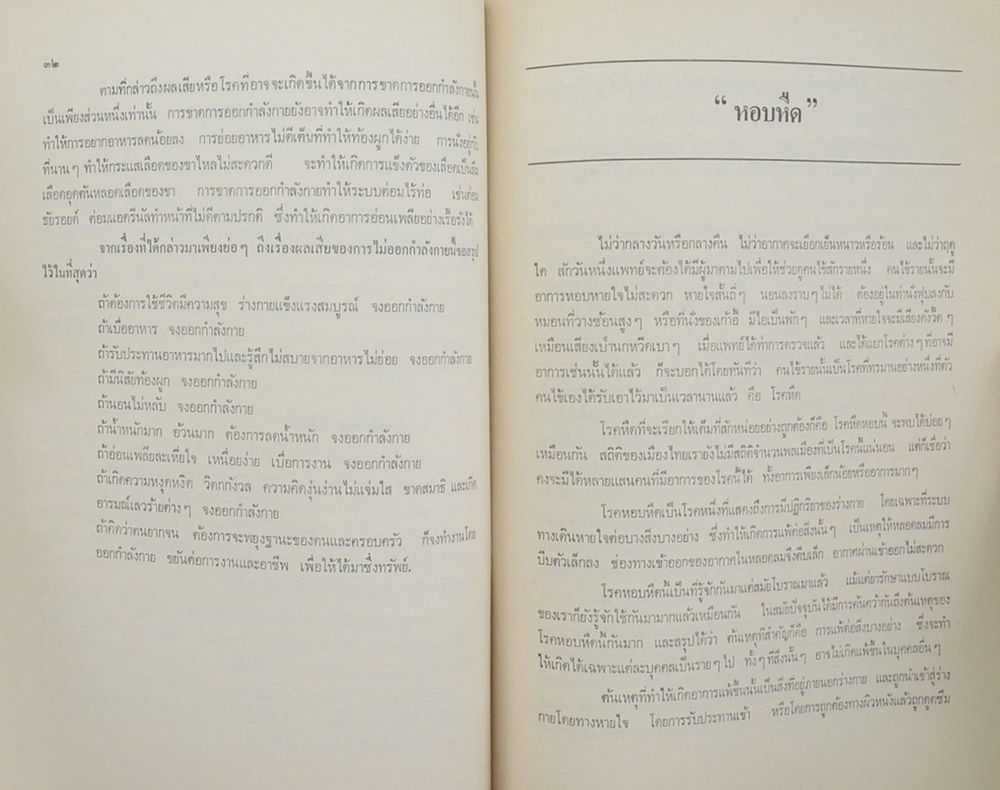 ๓๒
ตามที่กล่าวถึงผลเสียหรือโรคที่อาจจะเกิดขึ้นได้จากการขาดการออกกำลังกายนั้น
เป็นเพียงส่วนหนึ่งเท่านั้น การขาดการออกกำลังกายยังอาจทำให้เกิดผลเสียอย่างอื่นได้อีก เช่น
ทำให้การอยากอาหารลดน้อยลง การย่อยอาหารไม่ดีเต็มที่ทำให้ท้องผูกได้ง่าย การนั่งอยู่กับ
ที่นานๆ ทำให้กระแสเลือดของขาไหลไม่สะดวกดี จะทำให้เกิดการแข็งตัวของเลือดเป็นลิ่ม
เลือดอุดตันหลอดเลือดของขา การขาดการออกกำลังกายทำให้ระบบต่อมไร้ท่อ เช่นต่อม
ธัยรอยด์ ต่อมแอดรีนัลทำหน้าที่ไม่ดีตามปรกติ ซึ่งทำให้เกิดอาการอ่อนเพลียอย่างเรื้อรังได้
จากเรื่องที่ได้กล่าวมาเพียงย่อๆ ถึงเรื่องผลเสียของการไม่ออกกำลังกายนี้ขอสรุป
ไว้ในที่สุดว่า
ถ้าต้องการใช้ชีวิตมีความสุข ร่างกายแข็งแรงสมบูรณ์ จงออกกำลังกาย
ถ้าเบื่ออาหาร จงออกกำลังกาย
ถ้ารับประทานอาหารมากไปและรู้สึกไม่สบายจากอาหารไม่ย่อย จงออกกำลังกาย
ถ้ามีนิสัยท้องผูก จงออกกำลังกาย
ถ้านอนไม่หลับ จงออกกำลังกาย
ถ้าน้ำหนักมาก อ้วนมาก ต้องการลดน้ำหนัก จงออกกำลังกาย
ถ้าอ่อนเพลียละเหี่ยใจ เหนื่อยง่าย เบื่อการงาน จงออกกำลังกาย
ถ้าเกิดความหงุดหงิด วิตกกังวล ความคิดงุ่นง่านไม่แจ่มใส ขาดสมาธิ และเกิด
อารมณ์เลวร้ายต่างๆ จงออกกำลังกาย
ถ้าคิดว่าตนยากจน ต้องการจะพยุงฐานะของตนและครอบครัว ก็จงทำงานโดย
ออกกำลังกาย ขยันต่อการงานและอาชีพ เพื่อให้ได้มาซึ่งทรัพย์.
“ หอบหืด ”
ไม่ว่ากลางวันหรือกลางคืน ไม่ว่าอากาศจะเยือกเย็นหนาวหรือร้อน และไม่ว่าฤดู
ใด สักวันหนึ่งแพทย์จะต้องได้มีผู้มาตามไปเพื่อให้ช่วยดูคนไข้สักรายหนึ่ง คนไข้รายนั้นจะมี
อาการหอบหายใจไม่สะดวก หายใจสั้นถี่ๆ นอนลงราบๆ ไม่ได้ ต้องอยู่ในท่านั่งฟุบลงกับ
หมอนที่วางซ้อนสูงๆ หรือที่นั่งของเก้าอี้ มีไอเป็นพักๆ และเวลาที่หายใจจะมีเสียงดังวี้ดๆ
เหมือนเสียงเป่านกหวีดเบาๆ เมื่อแพทย์ได้ทำการตรวจแล้ว และได้แยกโรคต่างๆ ที่อาจมี
อาการเช่นนั้นได้แล้ว ก็จะบอกได้โดยทันทีว่า คนไข้รายนั้นเป็นโรคที่ทรมานอย่างหนึ่งที่ตัว
คนไข้เองได้รับเอาไว้มาเป็นเวลานานแล้ว คือ โรคหืด
โรคหืดที่จะเรียกให้เต็มที่สักหน่อยอย่างถูกต้องก็คือ โรคหืดหอบนี้ จะพบได้บ่อยๆ
เหมือนกัน สถิติของเมืองไทยเรายังไม่มีสถิติจำนวนพลเมืองที่เป็นโรคนี้แน่นอน แต่ก็เชื่อว่า
คงจะมีได้หลายแสนคนที่มีอาการของโรคนี้ได้ ทั้งอาการเพียงเล็กน้อยหรืออาการมากๆ
โรคหอบหืดเป็นโรคหนึ่งที่แสดงถึงการมีปฏิกิริยาของร่างกาย โดยเฉพาะที่ระบบ
ทางเดินหายใจต่อบางสิ่งบางอย่าง ซึ่งทำให้เกิดการแพ้ต่อสิ่งนั้นๆ เป็นเหตุให้หลอดลมมีการ
บีบตัวเล็กลง ช่องทางเข้าออกของอากาศในหลอดลมจึงตีบเล็ก อากาศผ่านเข้าออกไม่สะดวก
โรคหอบหืดนี้เป็นที่รู้จักกันมาแต่สมัยโบราณมาแล้ว แม้แต่ยารักษาแบบโบราณ
ของเราก็ยังรู้จักใช้กันมามากแล้วเหมือนกัน ในสมัยปัจจุบันได้มีการค้นคว้ากันถึงต้นเหตุของ
โรคหอบหืดนี้กันมาก และสรุปได้ว่า ต้นเหตุที่สำคัญก็คือ การแพ้ต่อสิ่งบางอย่าง ซึ่งจะทำ
ให้เกิดได้เฉพาะแต่ละบุคคลเป็นรายๆ ไป ทั้งๆ ที่สิ่งนั้นๆ อาจไม่เกิดแพ้ขึ้นในบุคคลอื่นๆ
ต้นเหตุที่ทำให้เกิดอาการแพ้ขึ้นนั้นเป็นสิ่งที่อยู่ภายนอกร่างกาย และถูกนำเข้าสู่ร่าง
กายโดยทางหายใจ โดยการรับประทานเข้า หรือโดยการถูกต้องทางผิวหนังแล้วถูกดูดซึม